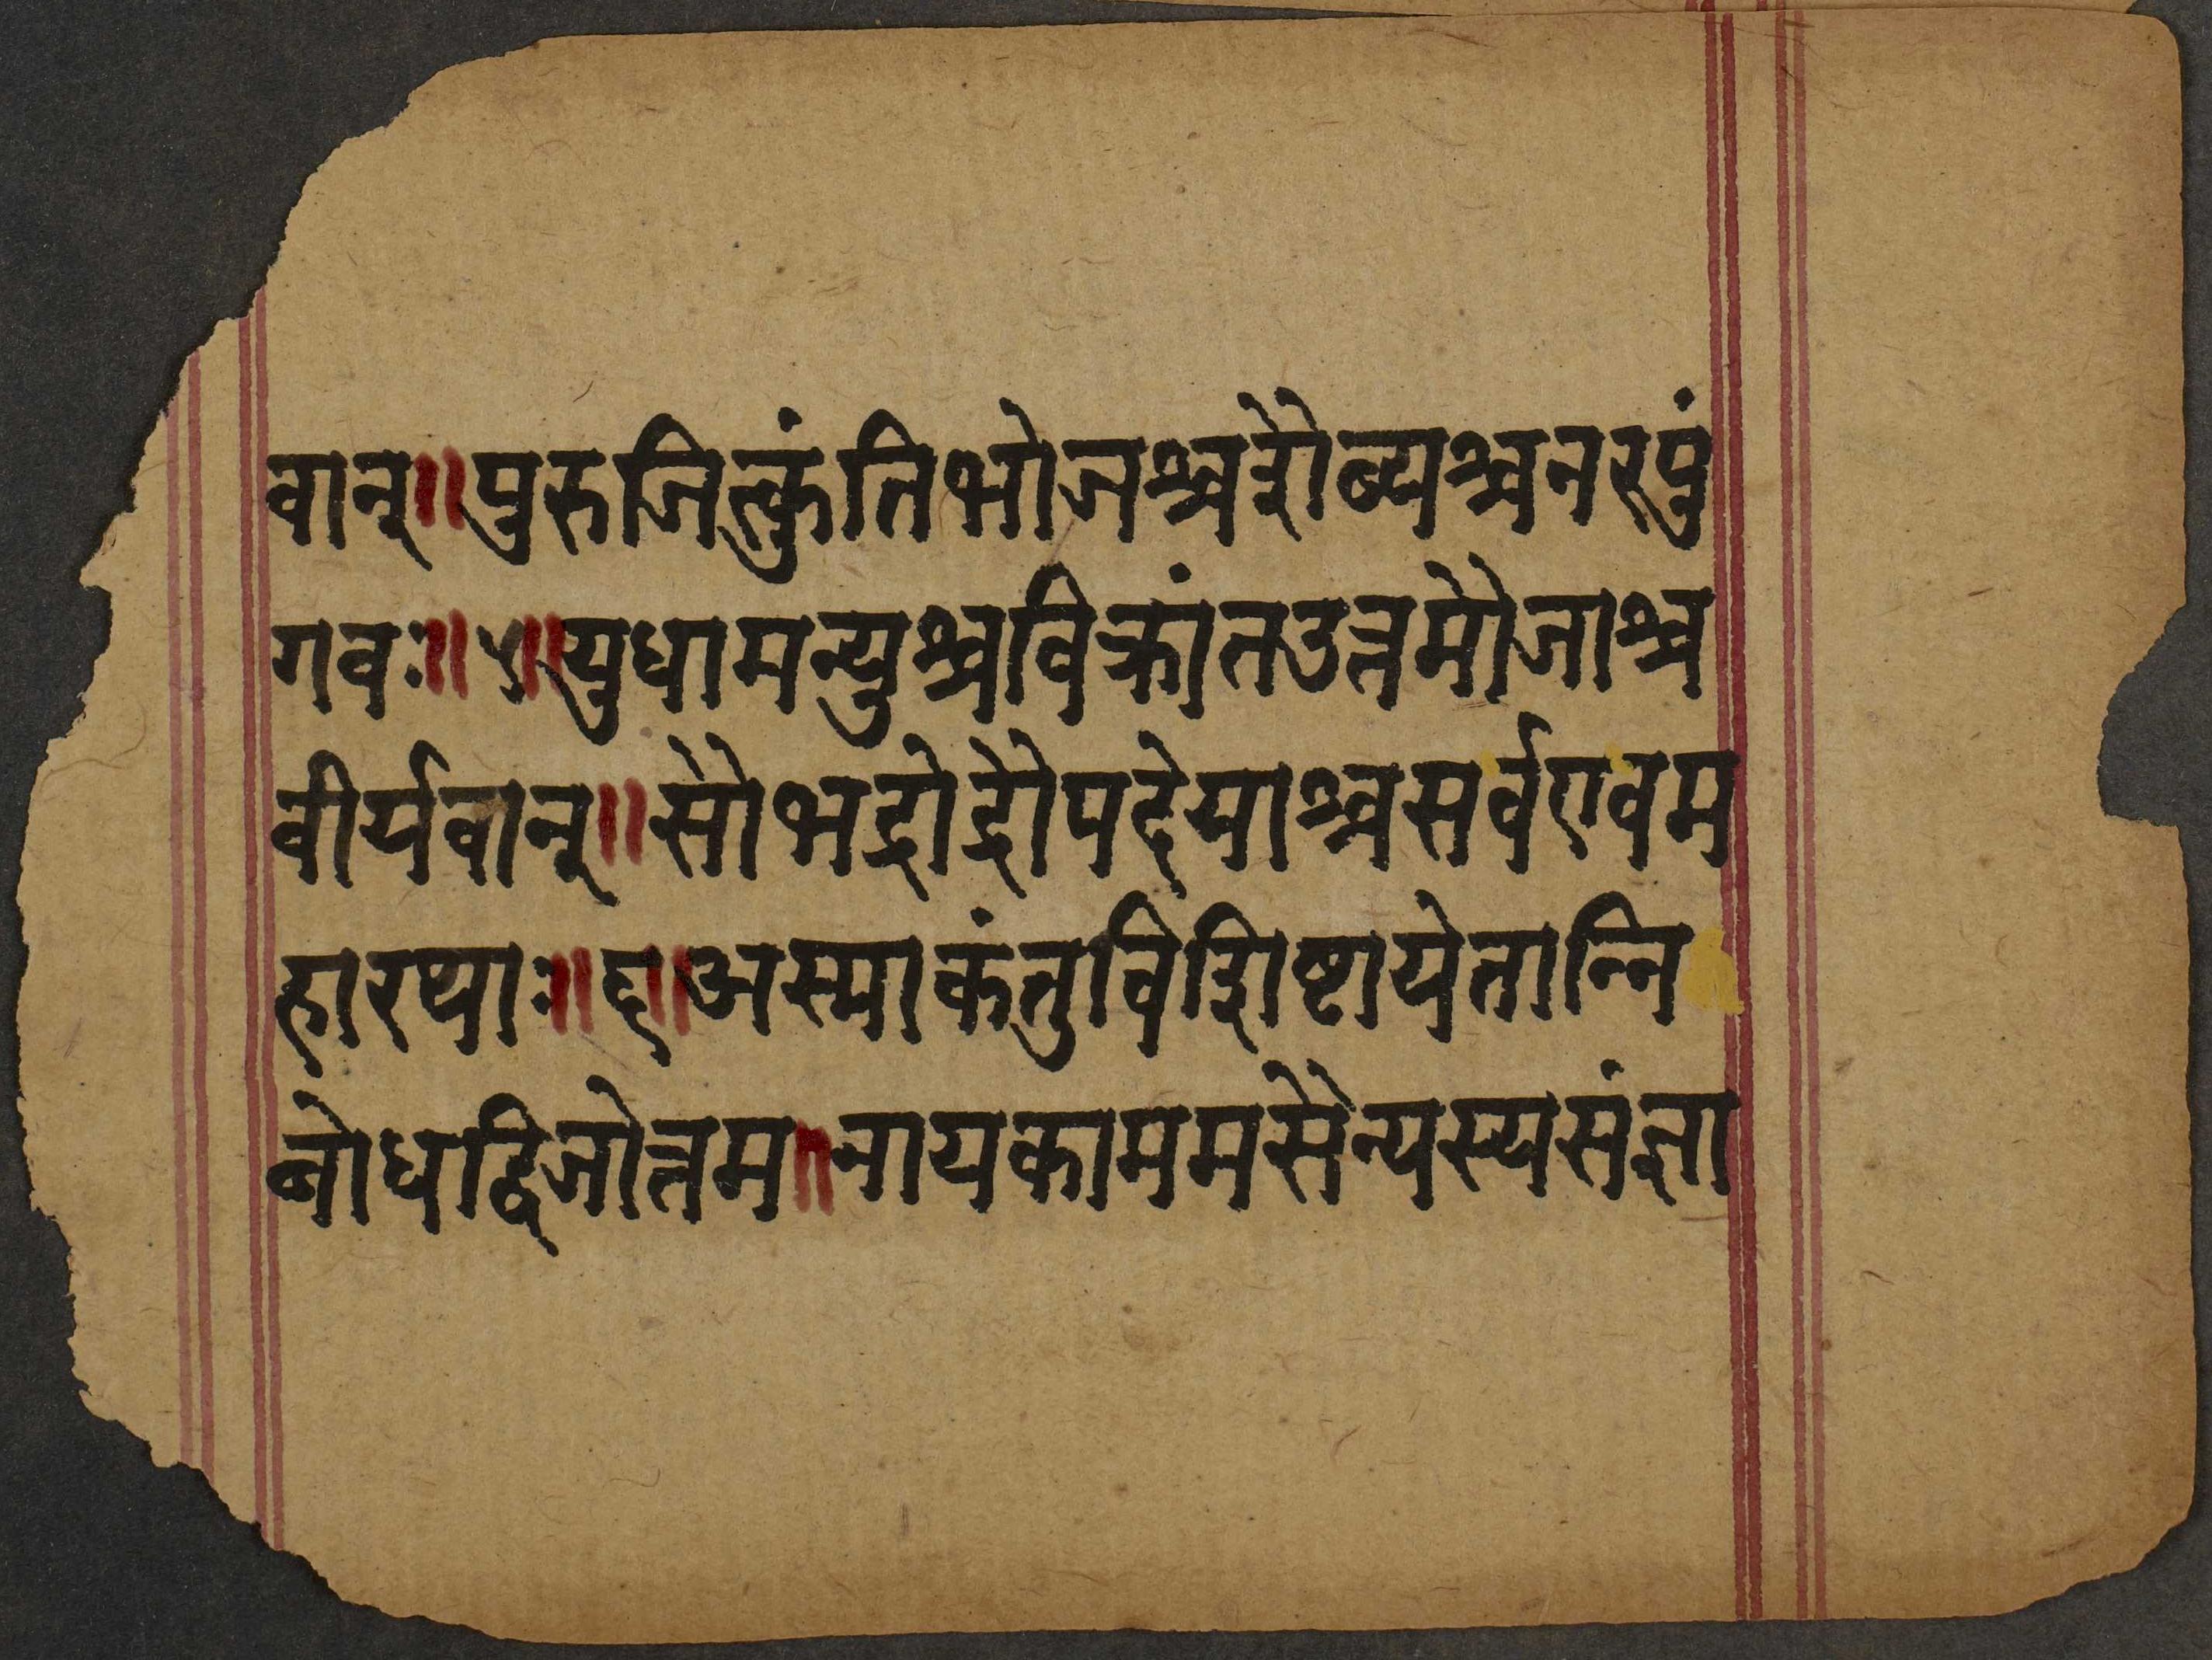 वान्॥पुरुजित्कुंतिभोजश्चशैब्यश्चनरपुं
गवः॥५॥युधामन्युश्चविक्रांतउत्तमौजाश्च
वीर्यवान्॥सौभद्रोद्रौपदेयाश्चसर्वएवम
हारथाः॥६॥अस्माकंतुविशिष्टायेतान्नि
बोधद्विजोत्तम॥नायकाममसैन्यस्यसंज्ञा